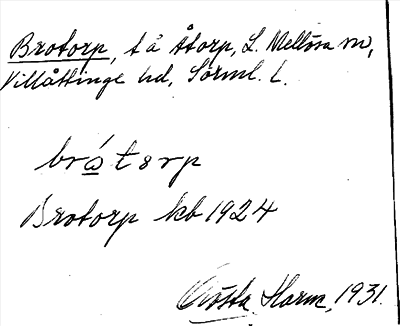 Brotorp, t å Åtorp, L. Mellösa sn,
Villåttinge hd, Sörml. l.
brótorp
Brotorp kb 1924
Gösta Harm, 1931.